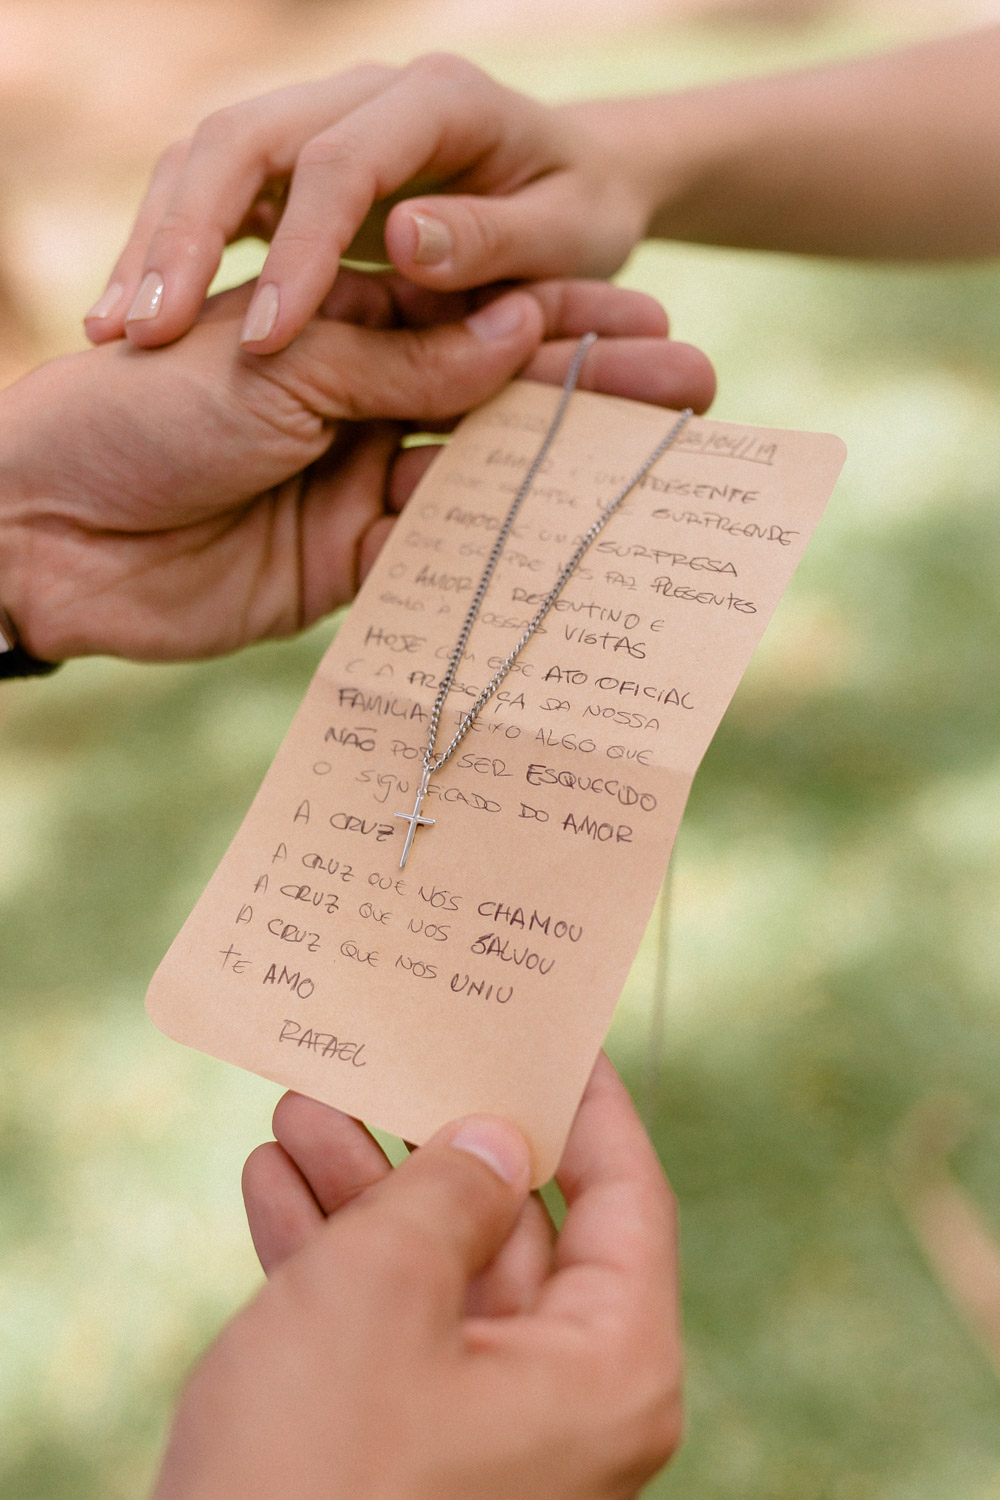 /04/19
AMOR É UM PRESENTE
QUE SEMPRE NOS SURPREENDE
O AMOR É UMA SURPRESA
QUE SEMPRE NOS FAZ PRESENTES
O AMOR É REPENTINO E
NOSSAS VISTAS
HOJE COM ESSE ATO OFICIAL
E A PRESENÇA DA NOSSA
FAMÍLIA, DEIXO ALGO QUE
NÃO PODE SER ESQUECIDO
O SIGNIFICADO DO AMOR
A CRUZ
A CRUZ QUE NOS CHAMOU
A CRUZ QUE NOS SALVOU
A CRUZ QUE NOS UNIU
TE AMO
RAFAEL